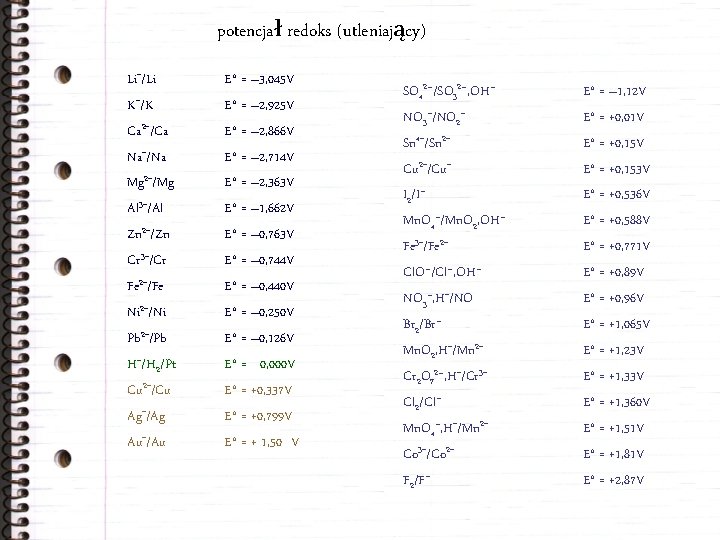 potencjał redoks (utleniający)
Li⁺/Li E° = –3,045V
K⁺/K E° = –2,925V
Ca²⁺/Ca E° = –2,866V
Na⁺/Na E° = –2,714V
Mg²⁺/Mg E° = –2,363V
Al³⁺/Al E° = –1,662V
Zn²⁺/Zn E° = –0,763V
Cr³⁺/Cr E° = –0,744V
Fe²⁺/Fe E° = –0,440V
Ni²⁺/Ni E° = –0,250V
Pb²⁺/Pb E° = –0,126V
H⁺/H₂/Pt E° = 0,000V
Cu²⁺/Cu E° = +0,337V
Ag⁺/Ag E° = +0,799V
Au⁺/Au E° = + 1,50 V
SO₄²⁻/SO₃²⁻,OH⁻ E° = –1,12V
NO₃⁻/NO₂⁻ E° = +0,01V
Sn⁴⁺/Sn²⁺ E° = +0,15V
Cu²⁺/Cu⁺ E° = +0,153V
I₂/I⁻ E° = +0,536V
MnO₄⁻/MnO₂,OH⁻ E° = +0,588V
Fe³⁺/Fe²⁺ E° = +0,771V
ClO⁻/Cl⁻,OH⁻ E° = +0,89V
NO₃⁻,H⁺/NO E° = +0,96V
Br₂/Br⁻ E° = +1,065V
MnO₂,H⁺/Mn²⁺ E° = +1,23V
Cr₂O₇²⁻,H⁺/Cr³⁺ E° = +1,33V
Cl₂/Cl⁻ E° = +1,360V
MnO₄⁻,H⁺/Mn²⁺ E° = +1,51V
Co³⁺/Co²⁺ E° = +1,81V
F₂/F⁻ E° = +2,87V